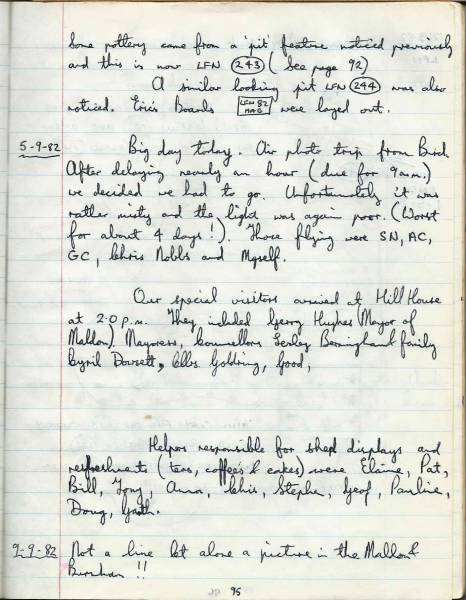 Some pottery came from a 'pit' feature noticed previously
and this is now LFN 243 ( See page 92)
A similar looking pit LFN 244 was also
noticed. Eric's Boards LFN 82 MAG were layed out.
5-9-82 Big day today. Air photo trip from Birch
After delaying nearly an hour (due for 9am.)
we decided we had to go. Unfortunately it was
rather misty and the light was again poor. (Worst
for about 4 days!). Those flying were SN, AC,
GC, Chris Nobbs and Myself.
Our special visitors arrived at Hill House
at 2.0 p.m. They included Gerry Hughes (Mayor of
Maldon) Mayoress, Councillors Lesley Bermingham & family
Cyril Dowsett, Cllrs. Goldring, Good,
Helpers responsible for shed displays and
refreshments (teas, coffee's & cakes) were Elaine, Pat,
Bill, Tony, Anna, Chris, Stephen, Geof, Pauline,
Doug, Garth.
9-9-82 Not a line let alone a picture in the Maldon &
Burnham !!
95